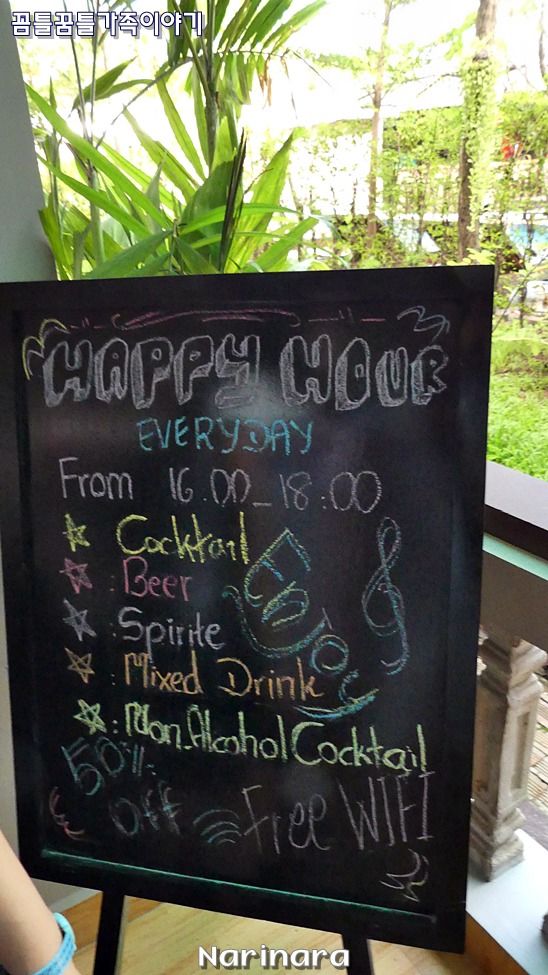 꿈틀꿈틀가족이야기
HAPPY HOUR
EVERYDAY
From 16.00_18:00
Cocktail
: Beer
: Spirite
: Mixed Drink
: Non_Alcohol Cocktail
50%
off Free WIFI
Narinara